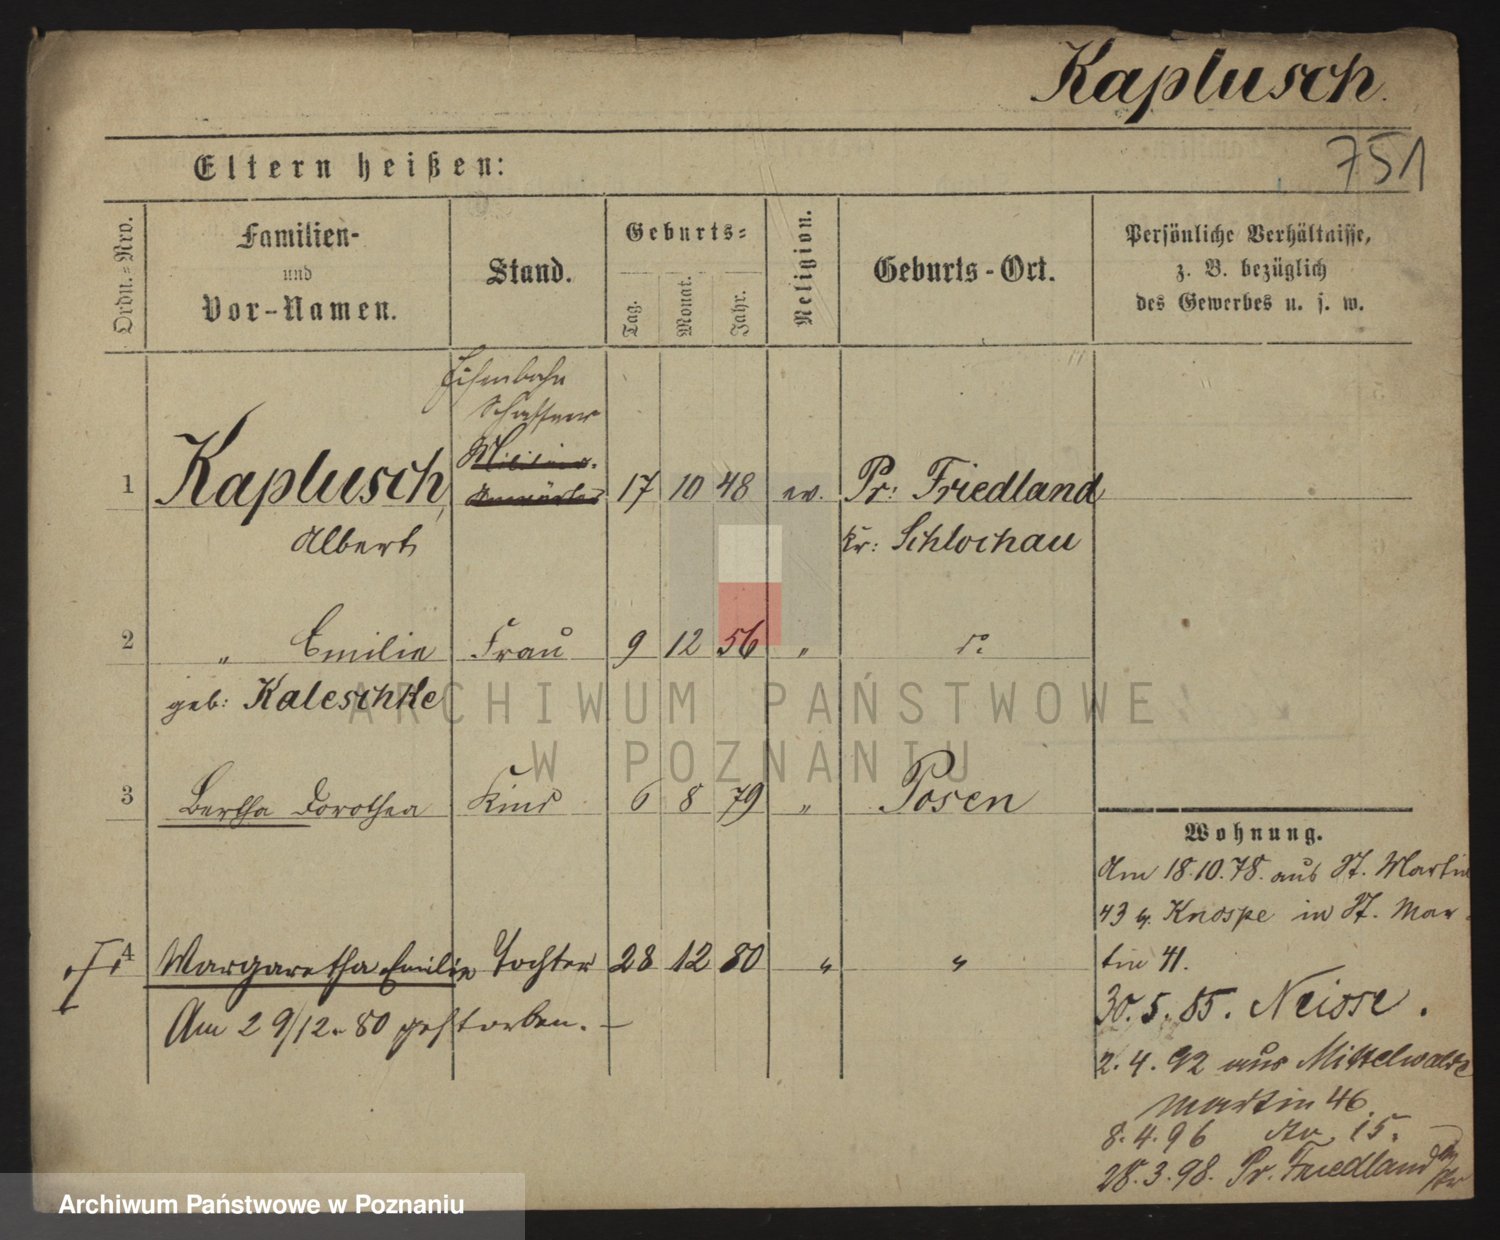 Kaplusch.
751
Eltern heißen:
Ordn.=Nro.
Familien-
und
Vor-Namen.
Stand.
Geburts=
Tag.
Monat.
Jahr.
Religion.
Geburts-Ort.
Persönliche Verhältnisse,
z. B. bezüglich
des Gewerbes u. s. w.
Eisenbahn
Schaffner
Militair-
Anwärter
1 Kaplusch, 17 10 48 ev. Pr: Friedland
Albert Kr: Schlochau
2 " Emilie Frau 9 12 56 " do
geb: Kaleschke
3 Bertha Dorothea Kind 6 8 79 " Posen
Wohnung.
Am 18.10.78. aus St. Martin
43 Knospe in St. Mar-
tin 41.
4 Margaretha Emilie Tochter 28 12 80 " "
Am 29/12. 80 gestorben. –
30.5.85. Neisse.
2.4.92 aus Mittelwalde
Martin 46.
8.4.96 15.
28.3.98. Pr. Friedland
ARCHIWUM PAŃSTWOWE
W POZNANIU
Archiwum Państwowe w Poznaniu